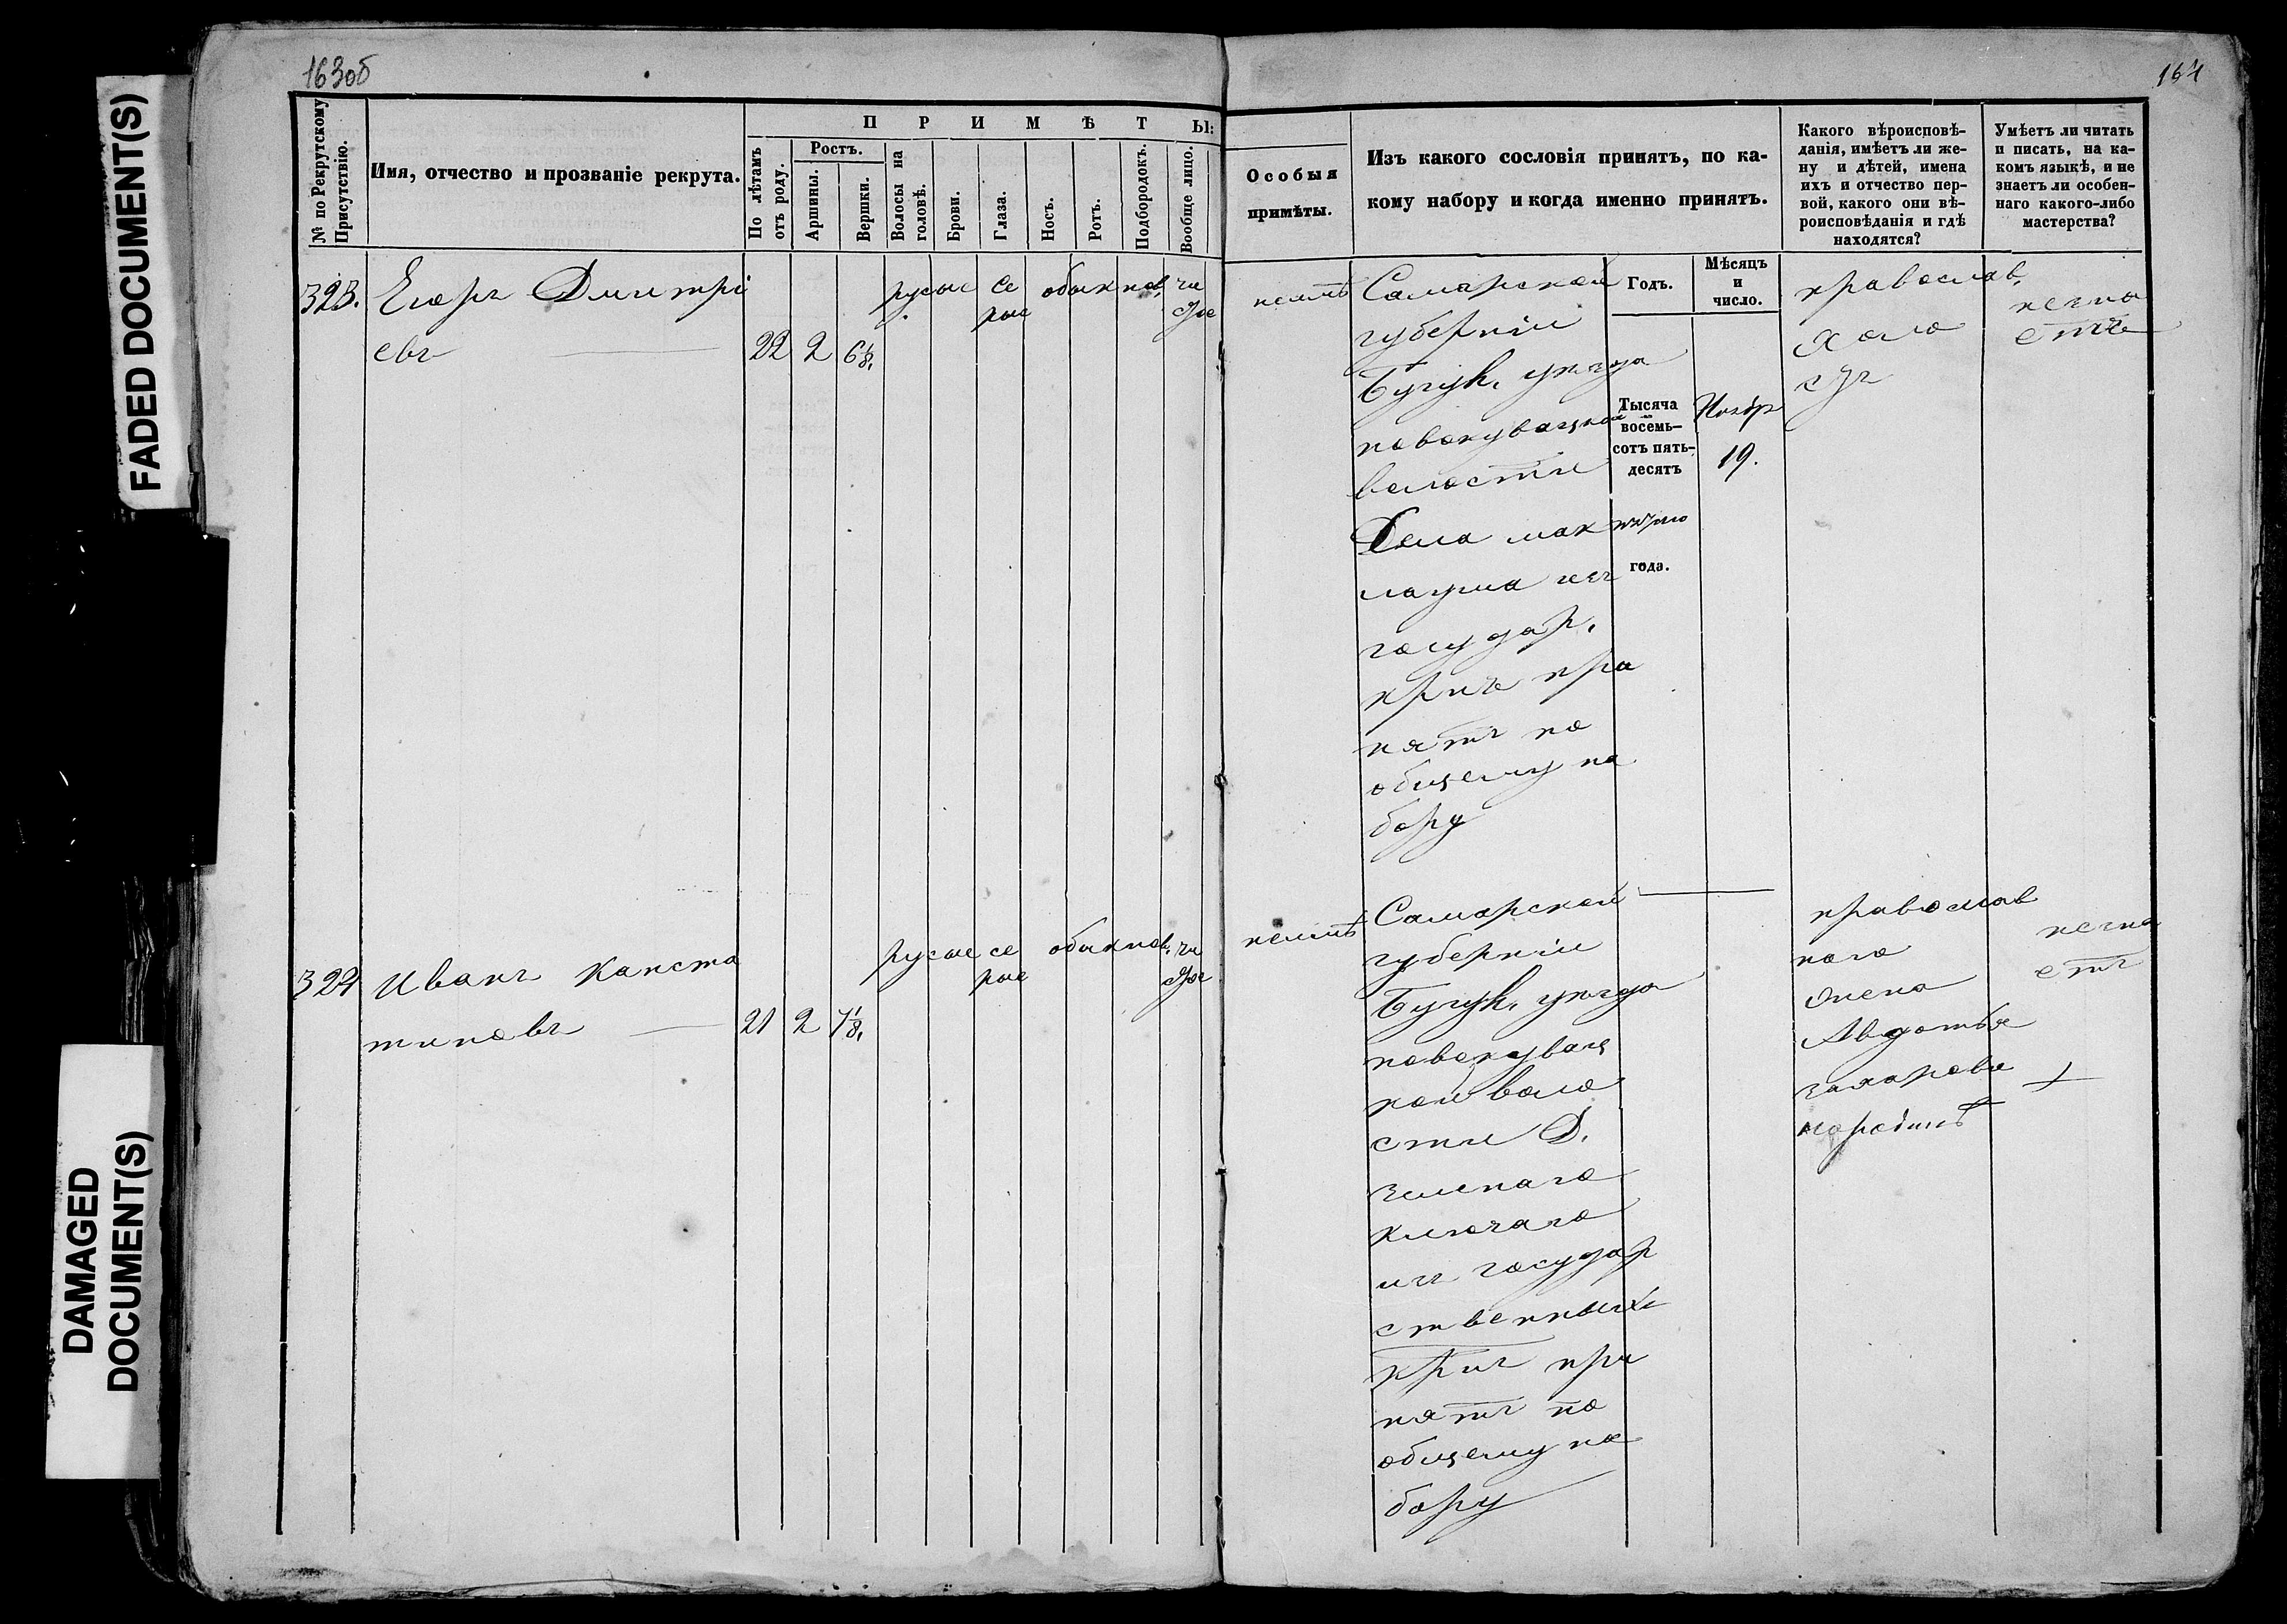 163об
164
FADED DOCUMENT(S)
DAMAGED
DOCUMENT(S)
№ по Рекрутскому
Присутствію.
Имя, отчество и прозваніе рекрута.
ПРИМѢТЫ:
По лѣтамъ
отъ роду.
Ростъ.
Аршины.
Вершки.
Волосы на
головѣ.
Брови.
Глаза.
Носъ.
Ротъ.
Подбородокъ.
Вообще лицо.
Особыя
примѣты.
Изъ какого сословія принятъ, по ка-
кому набору и когда именно принятъ.
Какого вѣроисповѣ-
данія, имѣетъ ли же-
ну и дѣтей, имена
ихъ и отчество пер-
вой, какого они вѣ-
роисповѣданія и гдѣ
находятся?
Умѣетъ ли читать
и писать, на ка-
комъ языкѣ, и не
знаетъ ли особен-
наго какого-либо
мастерства?
323.
Егоръ Дмитрі
евъ
22
2
6 1/8,
русые
се
рые
обыкнов,
чи
стое
неимѣ
Самарской
губерніи
Бугур, уѣзда
новокувацкой
волости
Села мак
лауша изъ
государ,
крнъ при
нятъ по
общему на
бору
Годъ.
Мѣсяцъ
и
число.
Тысяча
восемь-
сотъ пять-
десятъ
года.
Ноябр
19.
православ,
холо
стъ
незна
етъ
324
Иванъ Канста
тиновъ
21
2
7 1/8,
русые
се
рые
обыкнов,
чи
стое
неимѣ
Самарской
губерніи
Бугур, уѣзда
новокувац
кой воло
сти Д.
зеленаго
Ключаго
изъ государ
ственныхъ
крнъ при
нятъ по
общему на
бору
православ
наго
жена
Авдотья
захарова
незна
етъ